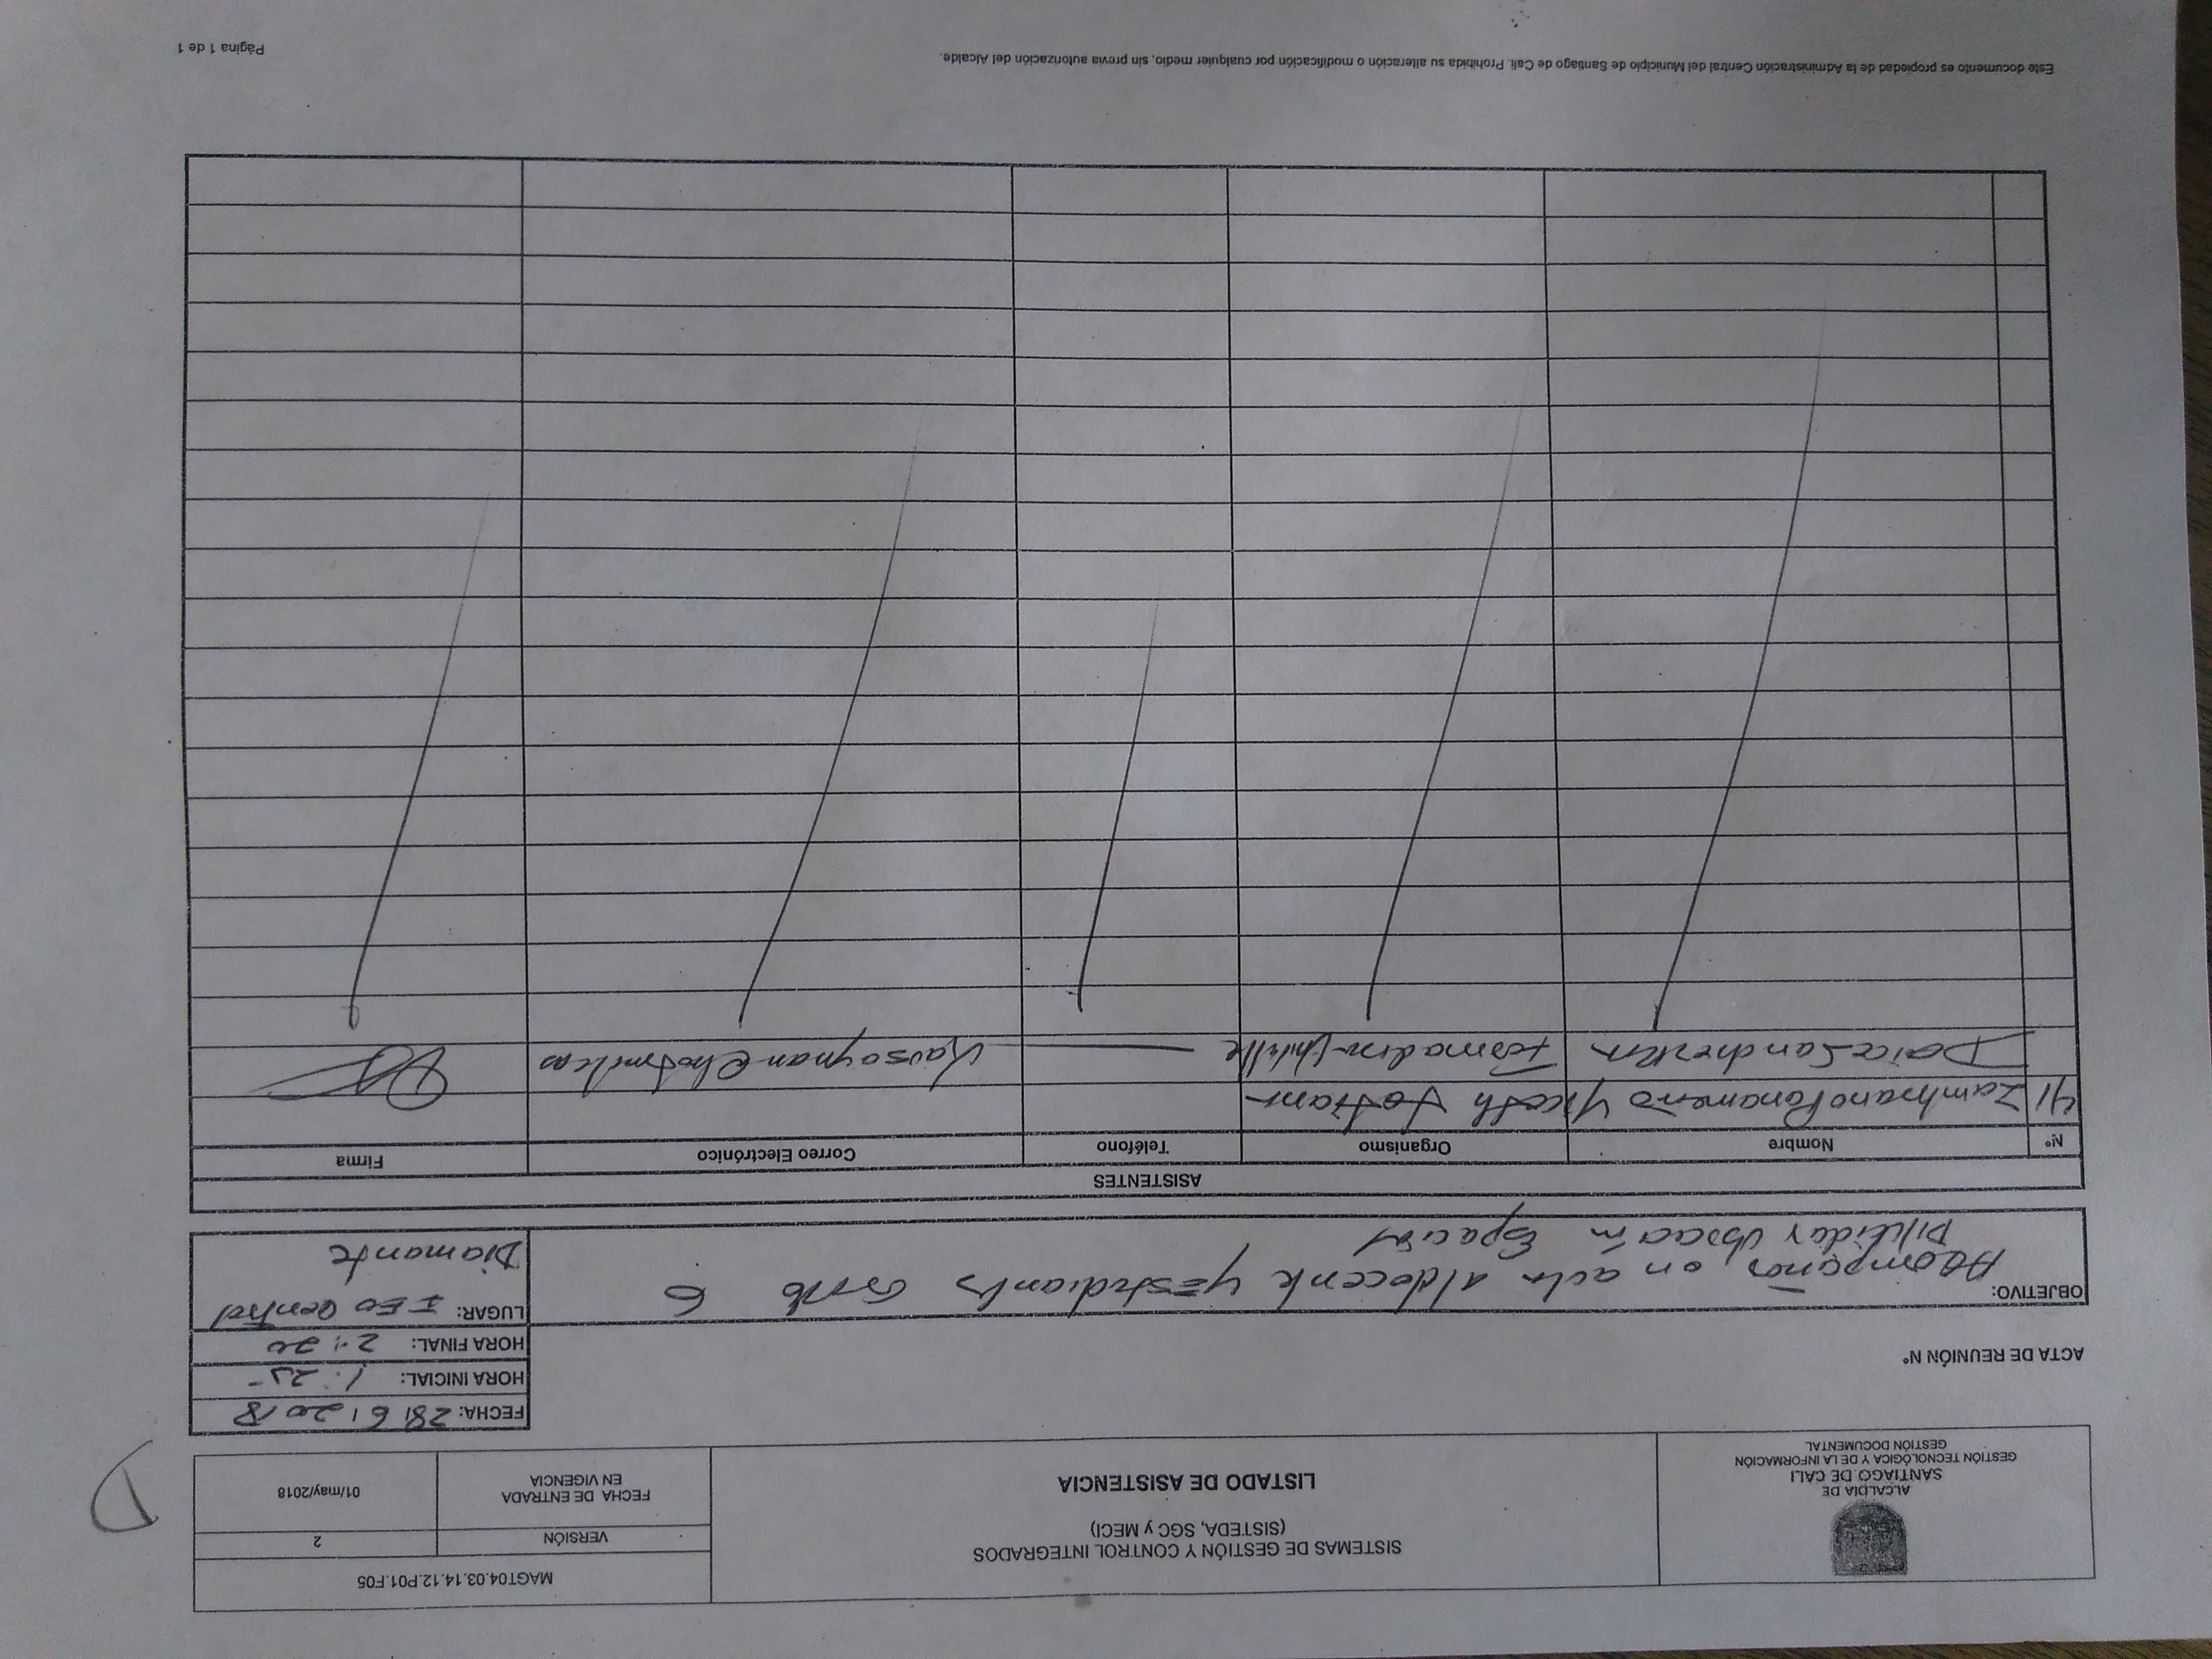 ALCALDÍA DE
SANTIAGO DE CALI
GESTIÓN TECNOLÓGICA Y DE LA INFORMACIÓN
GESTIÓN DOCUMENTAL
SISTEMAS DE GESTIÓN Y CONTROL INTEGRADOS
(SISTEDA, SGC y MECI)
LISTADO DE ASISTENCIA
MAGT04.03.14.12.P01.F05
VERSIÓN 2
FECHA DE ENTRADA
EN VIGENCIA
01/may/2018
D
FECHA: 28 6 2018
HORA INICIAL: 1:25
HORA FINAL: 2:20
ACTA DE REUNIÓN N°
LUGAR: IEO Central
Diamante
OBJETIVO:
Acompañar en aula al docente y Estudiantes Grado 6
Ubicación Espacial
ASISTENTES
N° Nombre Organismo Teléfono Correo Electrónico Firma
41 Zambrano Panameño Tatiana
Sanchez Formadora
Este documento es propiedad de la Administración Central del Municipio de Santiago de Cali. Prohibida su alteración o modificación por cualquier medio, sin previa autorización del Alcalde.
Página 1 de 1